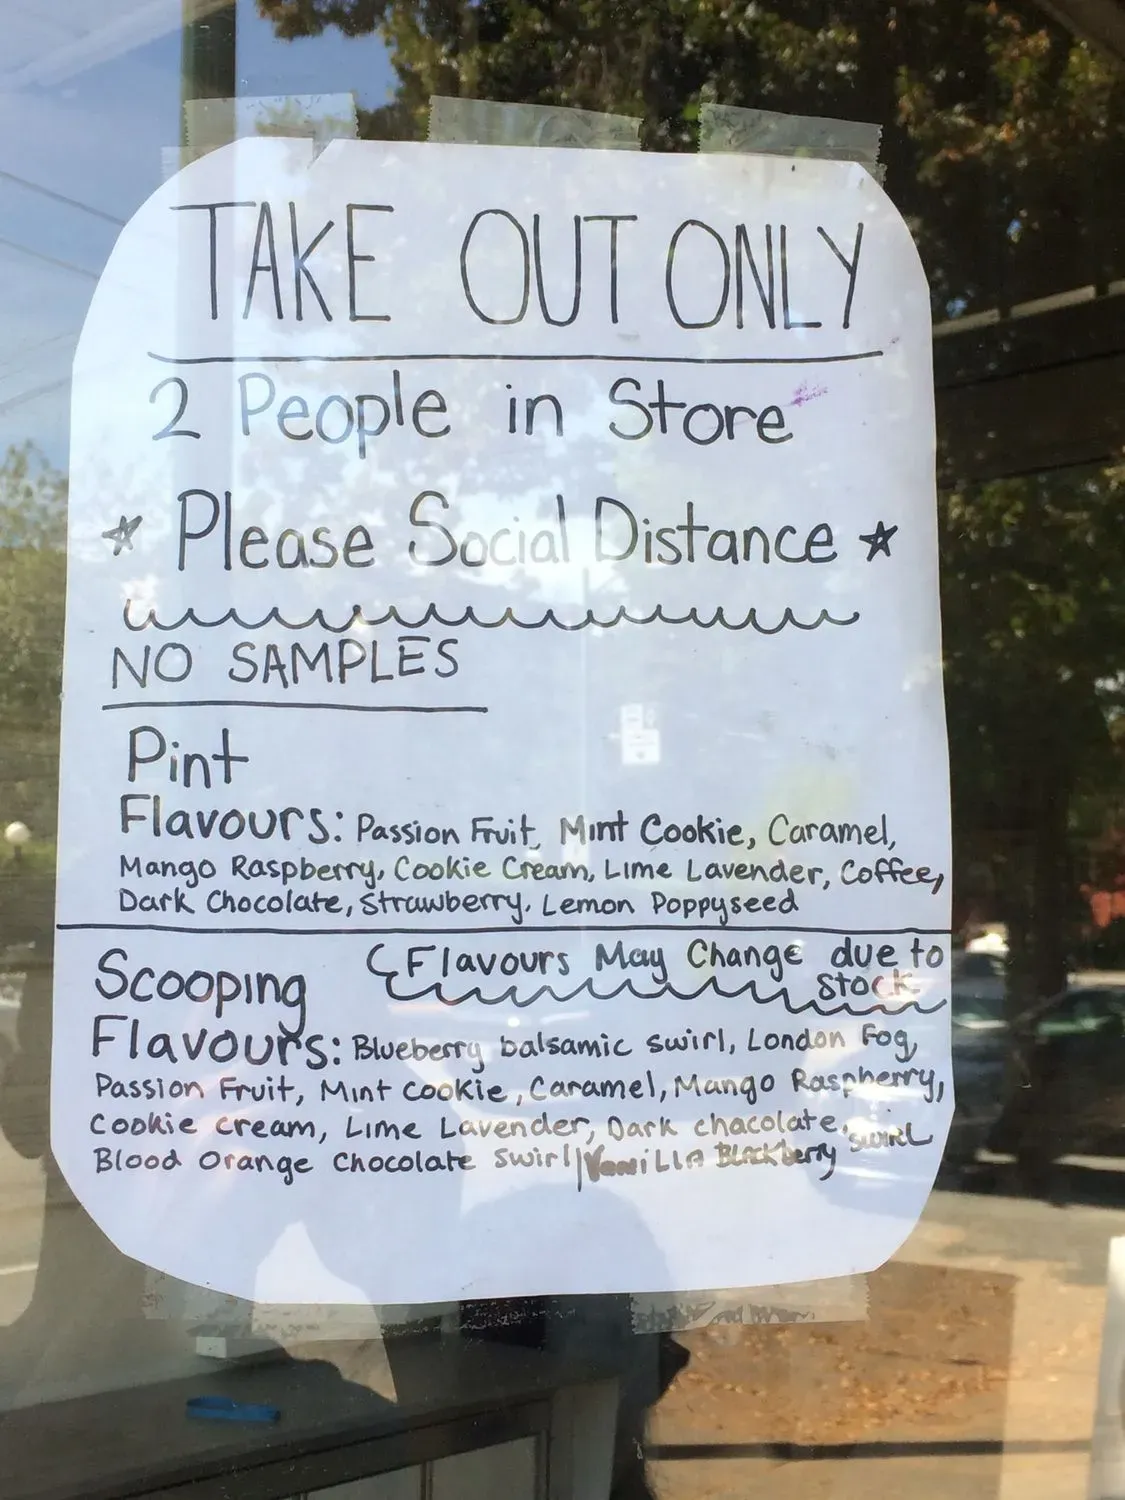 TAKE OUT ONLY
2 People in Store
☆ Please Social Distance ☆
NO SAMPLES
Pint
Flavours: Passion Fruit, Mint Cookie, Caramel,
Mango Raspberry, Cookie Cream, Lime Lavender, Coffee,
Dark Chocolate, Strawberry, Lemon Poppyseed
Flavours May Change due to
stock
Scooping
Flavours: Blueberry balsamic swirl, London Fog,
Passion Fruit, Mint cookie, Caramel, Mango Raspberry,
Cookie cream, Lime Lavender, Dark chacolate,
Blood Orange Chocolate swirl, Vanilla Blackberry swirl